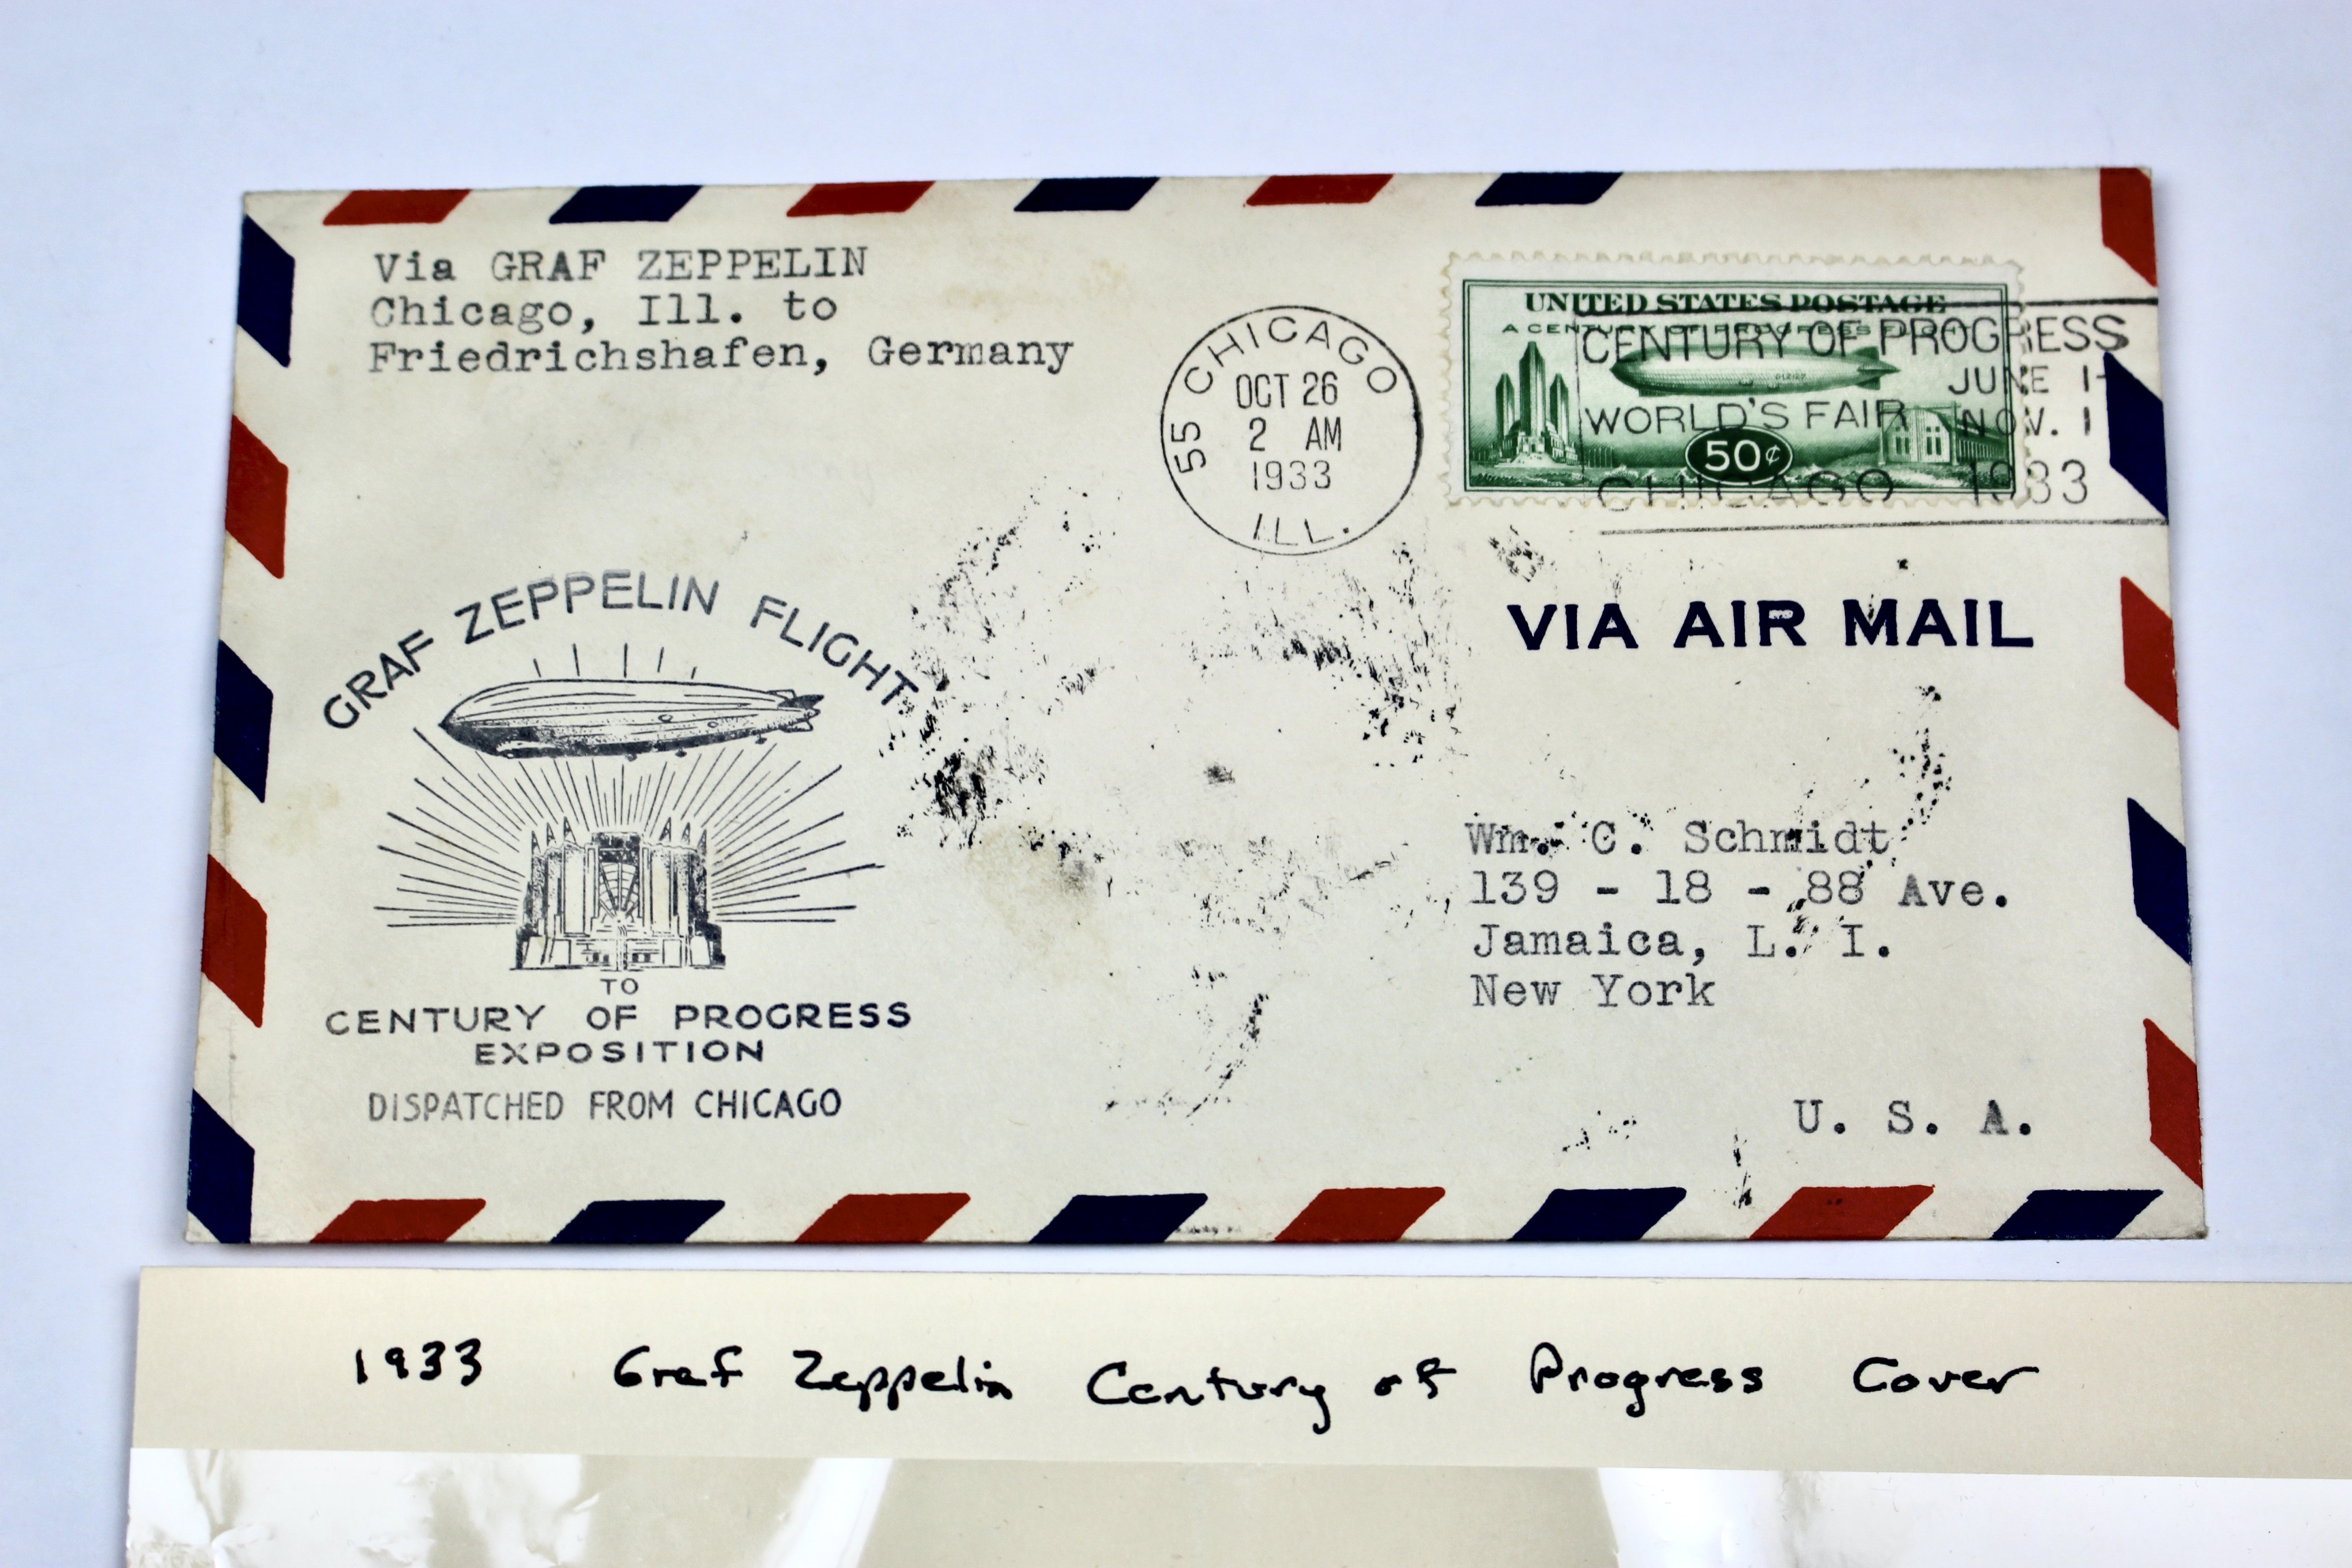 Via GRAF ZEPPELIN
Chicago, Ill. to
Friedrichshafen, Germany
55 CHICAGO
OCT 26
2 AM
1933
ILL.
UNITED STATES POSTAGE
A CENTURY OF PROGRESS FLIGHT
50¢
CENTURY OF PROGRESS
JUNE 1-
WORLD'S FAIR NOV. 1
CHICAGO 1933
VIA AIR MAIL
GRAF ZEPPELIN FLIGHT
TO
CENTURY OF PROGRESS
EXPOSITION
DISPATCHED FROM CHICAGO
Wm. C. Schmidt
139 - 18 - 88 Ave.
Jamaica, L. I.
New York
U. S. A.
1933 Graf Zeppelin Century of Progress Cover